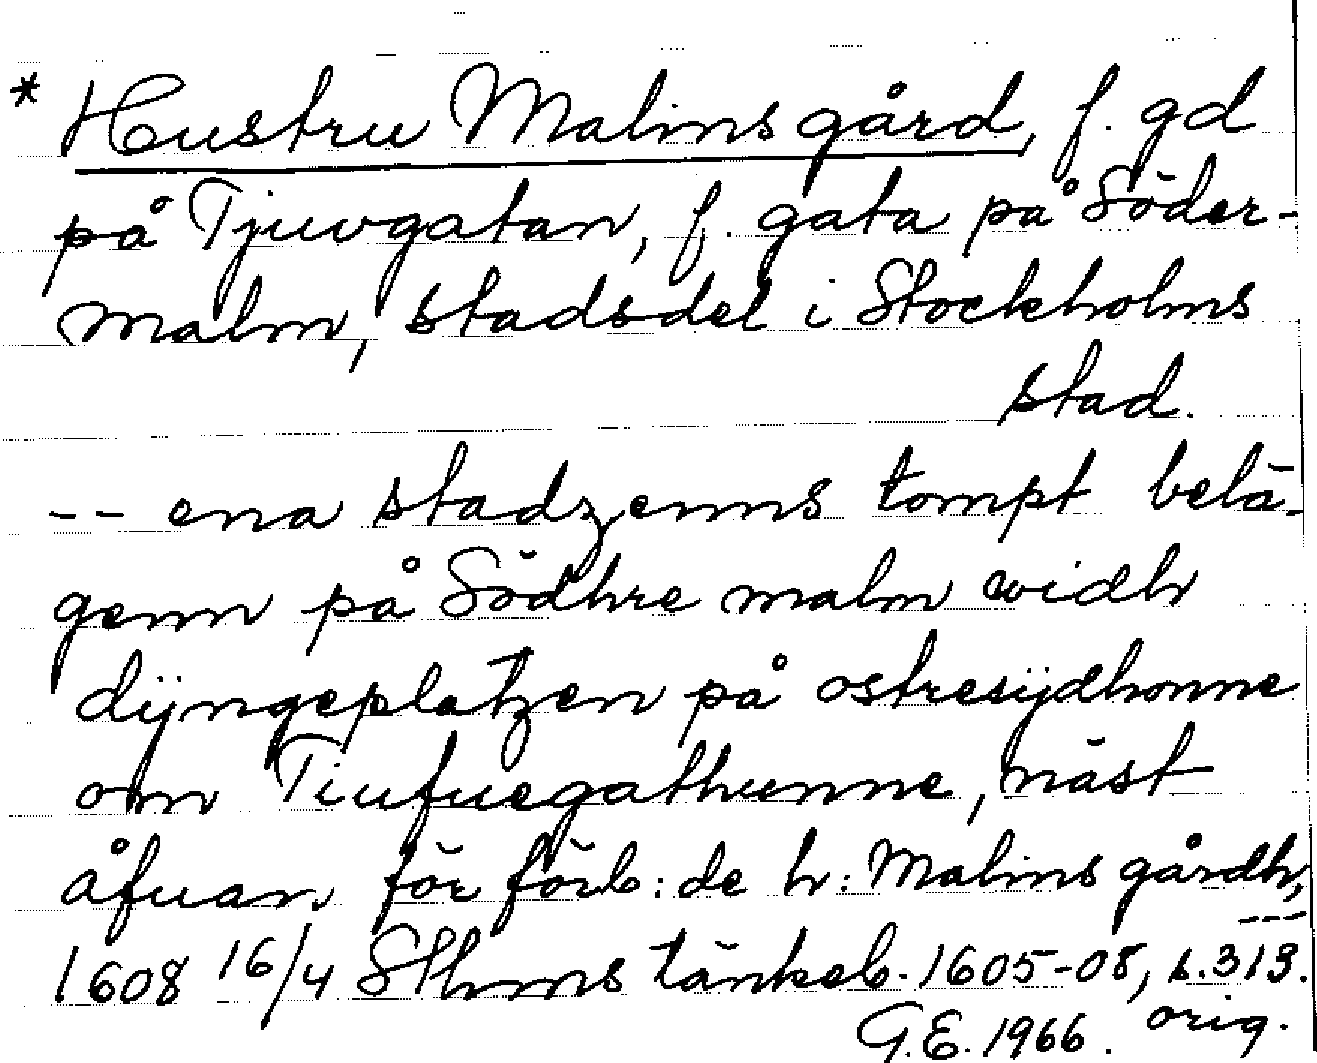 * Hustru Malins gård, f. gd
på Tjuvgatan, f. gata på Söder-
malm, stadsdel i Stockholms
stad.
-- ena stadzenns tompt belä-
genn på Södhre malm widh
dÿngeplatzen på ostresÿdhonne
om Tiufuegathunne, näst
åfuan för förb:de h: Malins gårdh,
---
1608 16/4 Sthms tänkeb. 1605-08, s. 313.
orig.
G.E. 1966.